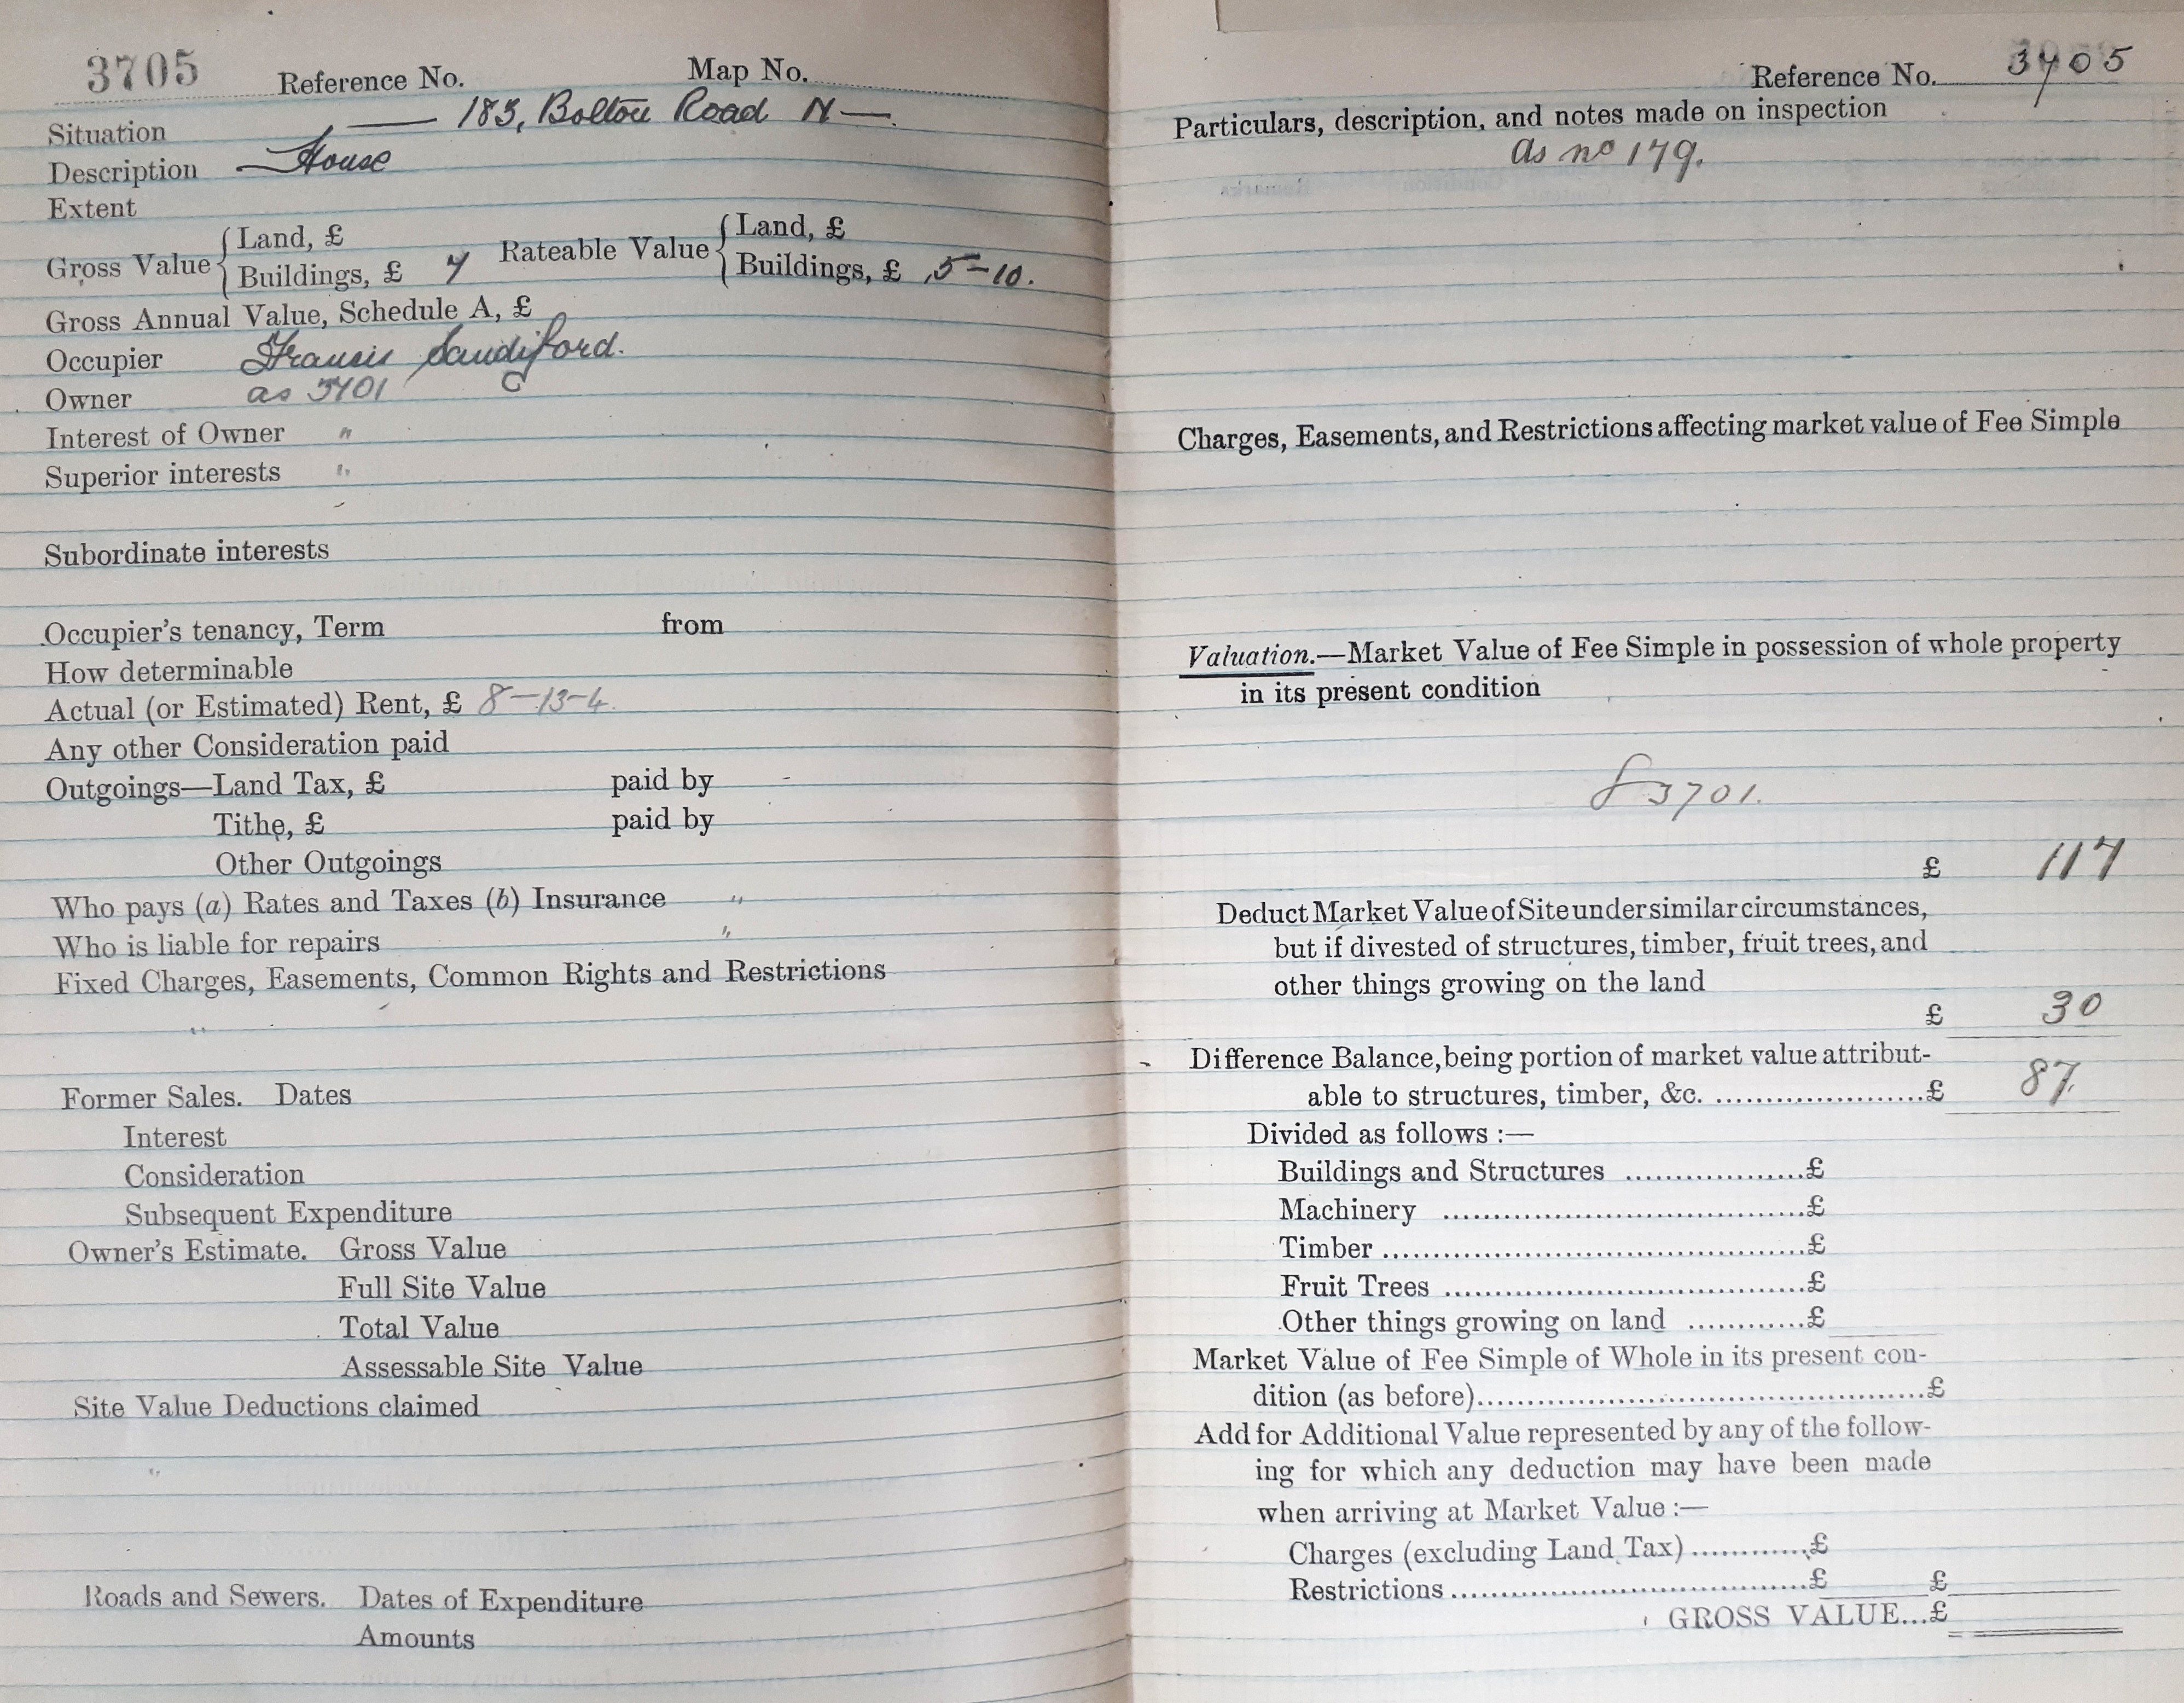 3705 Reference No. Map No.
Situation — 183, Bolton Road N—.
Description — House
Extent
Gross Value { Land, £
Buildings, £ 7
Rateable Value { Land, £
Buildings, £ 5-10.
Gross Annual Value, Schedule A, £
Occupier Francis Sandiford.
Owner as 3701
Interest of Owner "
Superior interests "
Subordinate interests
Occupier's tenancy, Term from
How determinable
Actual (or Estimated) Rent, £ 8-13-4.
Any other Consideration paid
Outgoings—Land Tax, £ paid by
Tithe, £ paid by
Other Outgoings
Who pays (a) Rates and Taxes (b) Insurance "
Who is liable for repairs "
Fixed Charges, Easements, Common Rights and Restrictions
"
Former Sales. Dates
Interest
Consideration
Subsequent Expenditure
Owner's Estimate. Gross Value
Full Site Value
Total Value
Assessable Site Value
Site Value Deductions claimed
"
Roads and Sewers. Dates of Expenditure
Amounts
Reference No. 3705
Particulars, description, and notes made on inspection
as no 179.
Charges, Easements, and Restrictions affecting market value of Fee Simple
Valuation.—Market Value of Fee Simple in possession of whole property
in its present condition
3701.
£ 117
Deduct Market Value of Site under similar circumstances,
but if divested of structures, timber, fruit trees, and
other things growing on the land
£ 30
Difference Balance, being portion of market value attribut-
able to structures, timber, &c. ......................£ 87.
Divided as follows :—
Buildings and Structures ...................£
Machinery ......................................£
Timber ............................................£
Fruit Trees ......................................£
Other things growing on land ............£
Market Value of Fee Simple of Whole in its present con-
dition (as before)................................................£
Add for Additional Value represented by any of the follow-
ing for which any deduction may have been made
when arriving at Market Value :—
Charges (excluding Land Tax) ............£
Restrictions ......................................£ £
GROSS VALUE...£